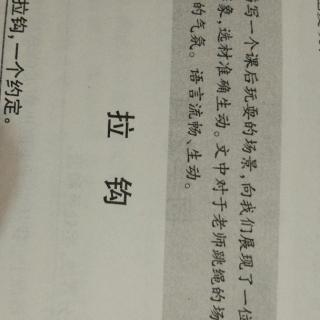 写一个课后玩耍的场景，向我们展现了一位
象，选材准确生动。文中对于老师跳绳的场
的气氛。语言流畅、生动。
拉 钩
拉钩，一个约定。